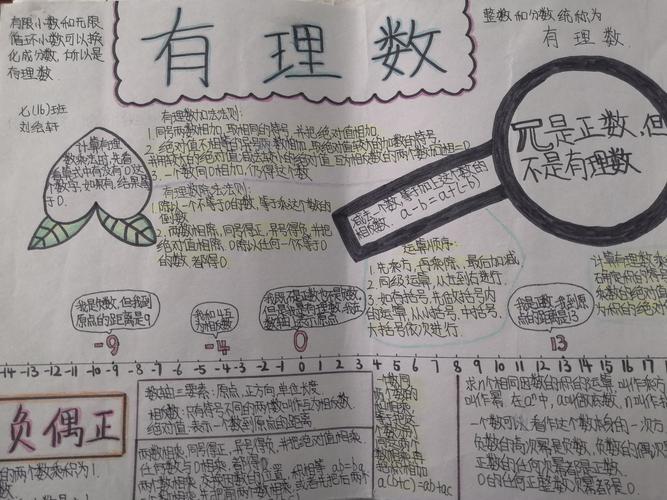 有限小数和无限
循环小数可以换
化成分数,所以是
有理数.
有理数
整数和分数统称为
有理数.
七(16)班
刘绘轩
计算有理
数乘法时,先看
看算式中有没有0这
个数字,如果有,结果属
于0.
有理数加法法则:
1.同号两数相加,取相同的符号,并把绝对值相加.
2.绝对值不相等的异号两数相加,取绝对值较大的加数的符号,
并用较大的绝对值减去较小的绝对值.互为相反数的两个数相加得=0
3.一个数同0相加,仍得这个数.
有理数除法法则:
1.除以一个不等于0的数,等于乘这个数的
倒数.
2.两数相除,同号得正,异号得负,并把
绝对值相除.0除以任何一个不等于0
的数,都得0.
π是正数,但
不是有理数
减去一个数,等于加上这个数的
相反数.
a-b=a+(-b)
运算顺序:
1.先乘方,再乘除,最后加减.
2.同级运算,从左到右进行.
3.如有括号,先做括号内
的运算,从小括号、中括号、
大括号依次进行.
计算有理数
我是负数,但我到
原点的距离是9
-9
我和4互
为相反数
-4
0
原点的距离是13
13
-14 -13 -12 -11 -10 -9 -8 -7 -6 -5 -4 -3 -2 -1 0 1 2 3 4 5 6 7 8 9 10 11 12 13 14 15 16 17
负偶正
的两个数乘积为1.
数轴三要素:原点,正方向,单位长度.
相反数:只有符号不同的两个数叫作互为相反数.
绝对值:表示一个数到原点的距离
两数相乘,同号得正,异号得负,并把绝对值相乘
任何数与0相乘,都得0.
两数相乘,交换因数的位置,积相等 ab=ba
一个数同
两个数的
a(b+c)=ab+ac
求n个相同因数的积的运算,叫作乘方
叫作幂.在aⁿ中,a叫做底数,n叫作
一个数可以看作这个数本身的一次方
负数的奇次幂是负数,负数的偶次幂
正数的任何次幂都是正数.
0的任何正整数次幂都是0.